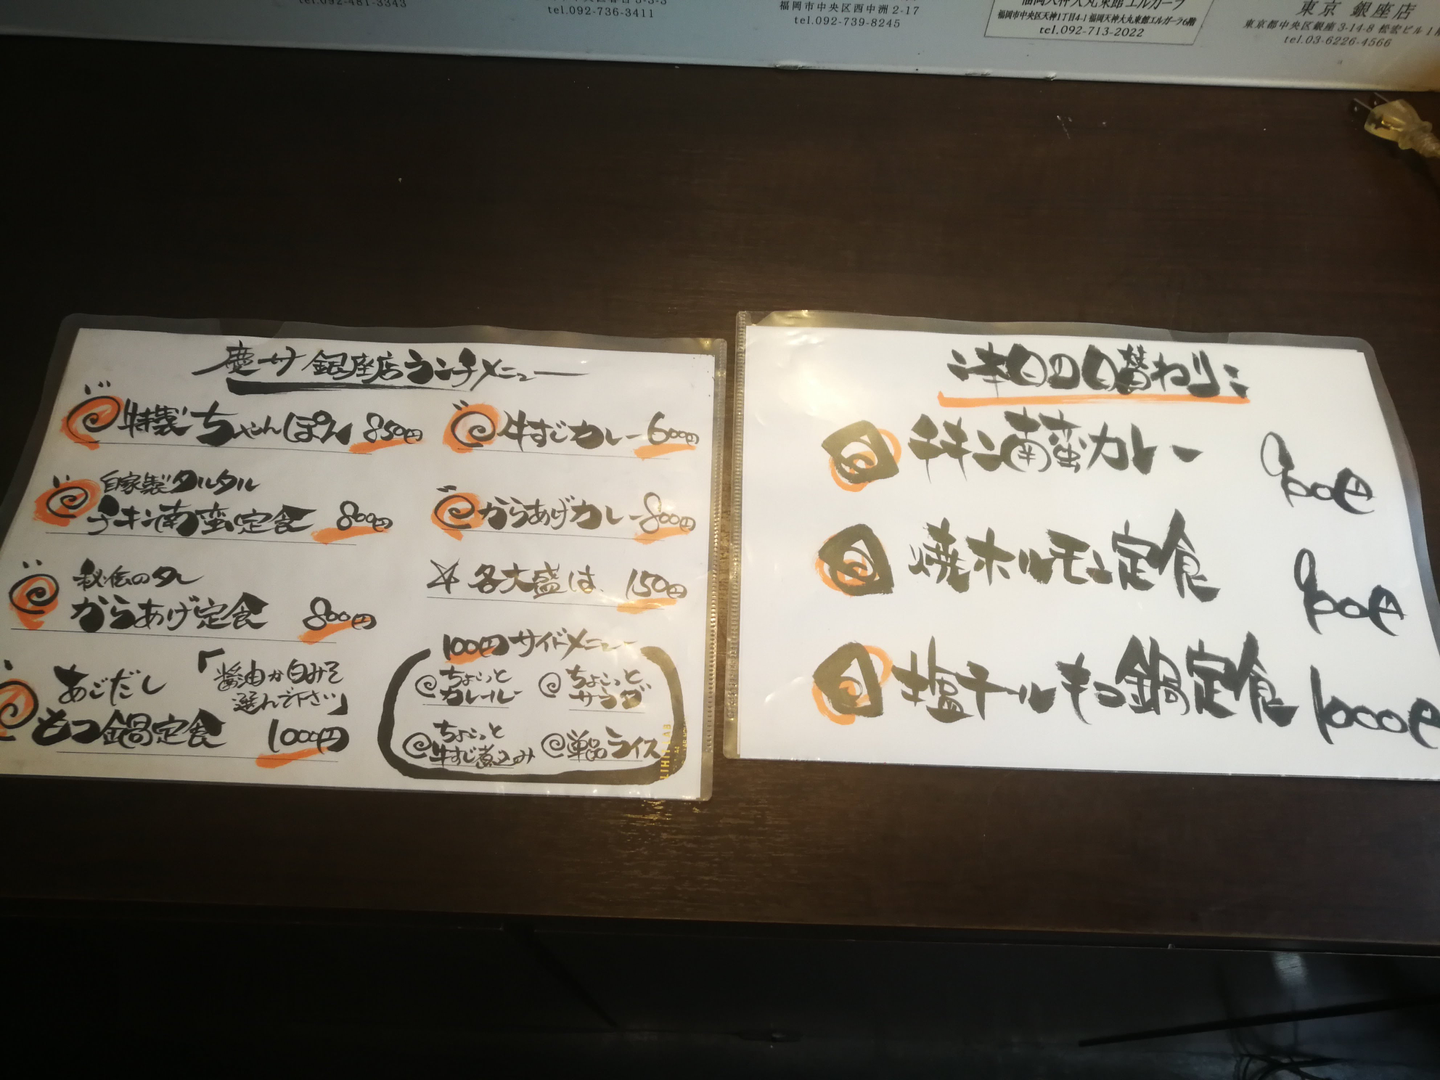 tel.092-481-3343
tel.092-736-3411
福岡市中央区西中洲 2-17
tel.092-739-8245
福岡天神大丸東館エルガーラ
福岡市中央区天神1丁目4-1 福岡天神大丸東館エルガーラ6階
tel.092-713-2022
東京 銀座店
東京都中央区銀座 3-14-8 松宏ビル1
tel.03-6226-4566
銀座店ランチメニュー
特製ちゃんぽん 850円
自家製タルタル
チキン南蛮定食 800円
秘伝のタレ
からあげ定食 800円
あごだし
もつ鍋定食
「醤油か白みそ
選んで下さい」
1000円
牛すじカレー 600円
からあげカレー 800円
☆ 各大盛は、150円
100円サイドメニュー
ちょこっと
カレールー
ちょこっと
サラダ
ちょこっと
牛すじ煮込み
単品ライス
本日の日替わり
チキン南蛮カレー 900円
焼ホルモン定食 900円
塩チールもつ鍋定食 1000円